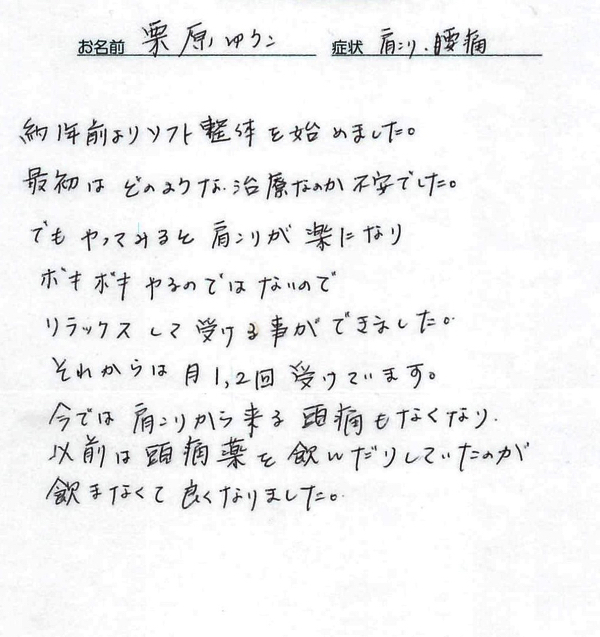 お名前 栗原ゆうこ 症状 肩こり、腰痛
約1年前よりソフト整体を始めました。
最初はどのような治療なのか不安でした。
でもやってみると肩こりが楽になり
ボキボキやるのではないので
リラックスして受ける事ができました。
それからは月1,2回受けています。
今では肩こりから来る頭痛もなくなり、
以前は頭痛薬を飲んだりしていたのが
飲まなくて良くなりました。